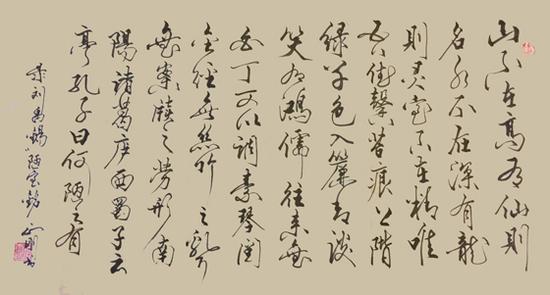 山不在高有仙則
名水不在深有龍
則灵室不在精唯
吾德馨苔痕上階
绿草色入簾青谈
笑有鴻儒往来無
白丁可以調素琴閱
金经無絲竹之乱耳
無案牘之勞形南
陽諸葛庐西蜀子云
亭孔子曰何陋之有
录刘禹锡陋室銘